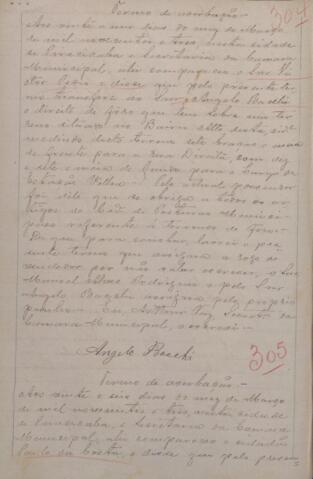 304
Termo de averbação.-
Aos vinte e um dias do mez de Março
de mil novecentos e tres, nesta cidade
de Piracicaba e Secretaria da Camara
Municipal, ahi compareceu o Snr.
e disse que pelo presente ter-
mo transferia ao Snr. Angelo Bacchi
o direito de que tem sobre um ter-
reno situado no Bairro Alto desta cida
medindo dito terreno sete braças e meia
de frente para a Rua Direita, com dez
e sete e meia de fundo para o
Pelo actual possuidor
foi dito que se obriga a todos os ar-
tigos do Cod. de Posturas Munici-
paes referente á terrenos
De que para constar, lavrei o pre-
sente termo que assigna a rogo do
vendedor por não saber escrever, o Snr.
Manoel Rodrigues e pelo Snr.
Angelo Bacchi assigna pelo proprio
punho.- Eu, Secretario da
Camara Municipal, o escrevi.-
Angelo Bacchi
305
Termo de averbação.-
Aos vinte e seis dias do mez de Março
de mil novecentos e tres, nesta cidade
de Piracicaba, e Secretaria da Camara
Municipal, ahi compareceu o cidadão
da Costa, e disse que pelo presen